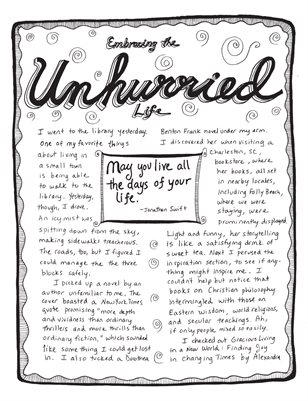 Embracing the
Unhurried
Life
I went to the library yesterday.
One of my favorite things
about living in
a small town
is being able
to walk to the
library. Yesterday,
though, I drove.
An icy mist was
spitting down from the sky,
making sidewalks treacherous.
The roads, too, but I figured I
could manage the three
blocks safely.
I picked up a novel by an
author unfamiliar to me. The
cover boasted a New York Times
quote promising "more depth
and vividness than ordinary
thrillers and more thrills than
ordinary fiction," which sounded
like something I could get lost
in. I also tucked a Dorothea
May you live all
the days of your
life.
-Jonathan Swift
Benton Frank novel under my arm.
I discovered her when visiting a
Charleston, SC,
bookstore, where
her books, all set
in nearby locales,
including Folly Beach,
where we were
staying, were
prominently displayed.
Light and funny, her storytelling
is like a satisfying drink of
sweet tea. Next I perused the
inspiration section, to see if any-
thing might inspire me. I
couldn't help but notice that
books on Christian philosophy
intermingled with those on
Eastern wisdom, world religions,
and secular teachings. Ah,
if only people mixed so easily.
I checked out Gracious Living
in a New World: Finding Joy
in Changing Times by Alexandra